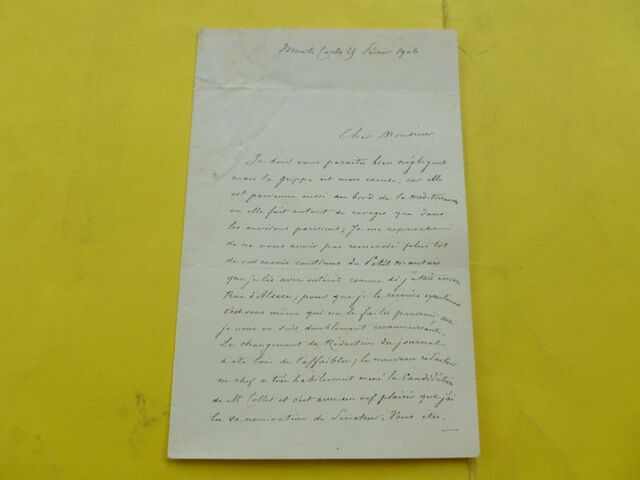 Monte Carlo 25 février 1906
Cher Monsieur,
Je dois vous paraître bien négligent
mais la grippe est mon excuse, car elle
est parvenue aussi au bord de la méditerranée
où elle fait autant de ravages que dans
les environs parisiens; Je me reproche
de ne vous avoir pas remercié plus tôt
de vos envois continus du Petit
que je lis avec intérêt comme si j'étais encore
Rue d'Alsace; pour que je le reçoive
c'est vous même qui me le faites parvenir aussi
je vous en suis doublement reconnaissant.
Le changement de Rédaction du journal
a été loin de l'affaiblir; le nouveau rédacteur
en chef a très habilement mené la Candidature
de Mr Collet et c'est avec un vif plaisir que j'ai
lu sa nomination de Sénateur. Vous êtes